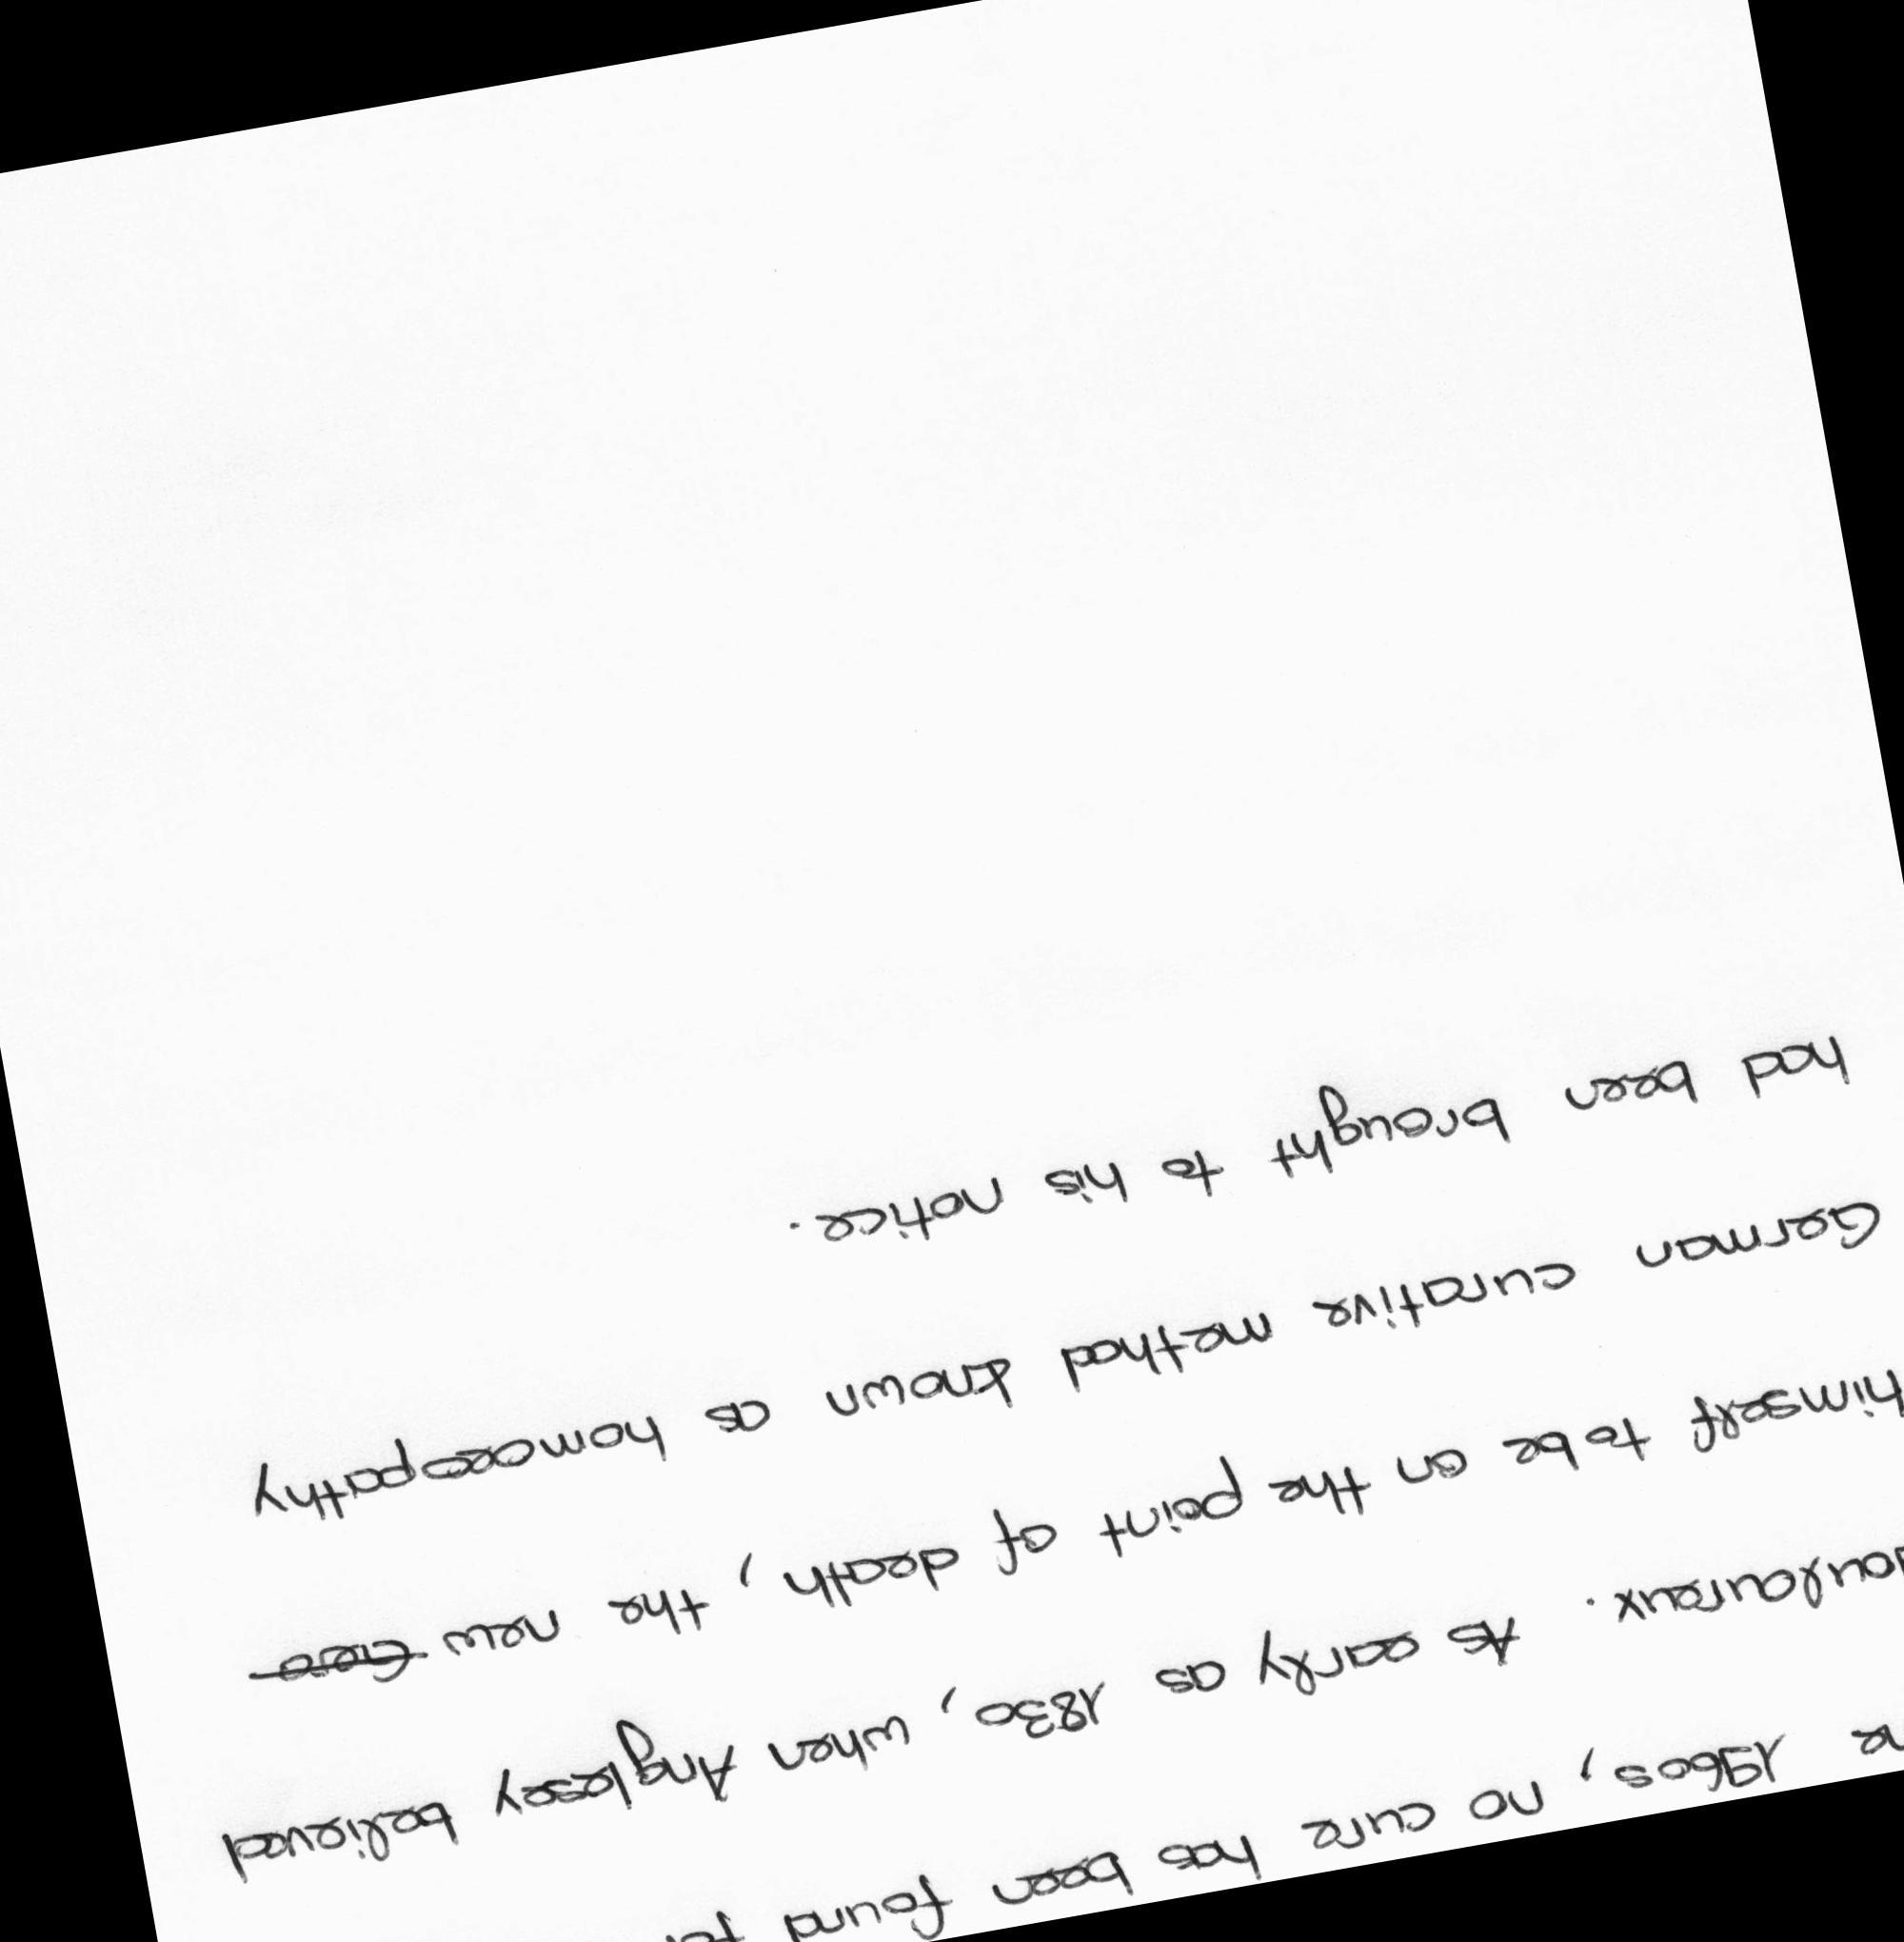 1960s, no cure has been found
douloureux. As early as 1830, when Anglesey believed
himself to be on the point of death, the new
German curative method known as homoeopathy
had been brought to his notice.